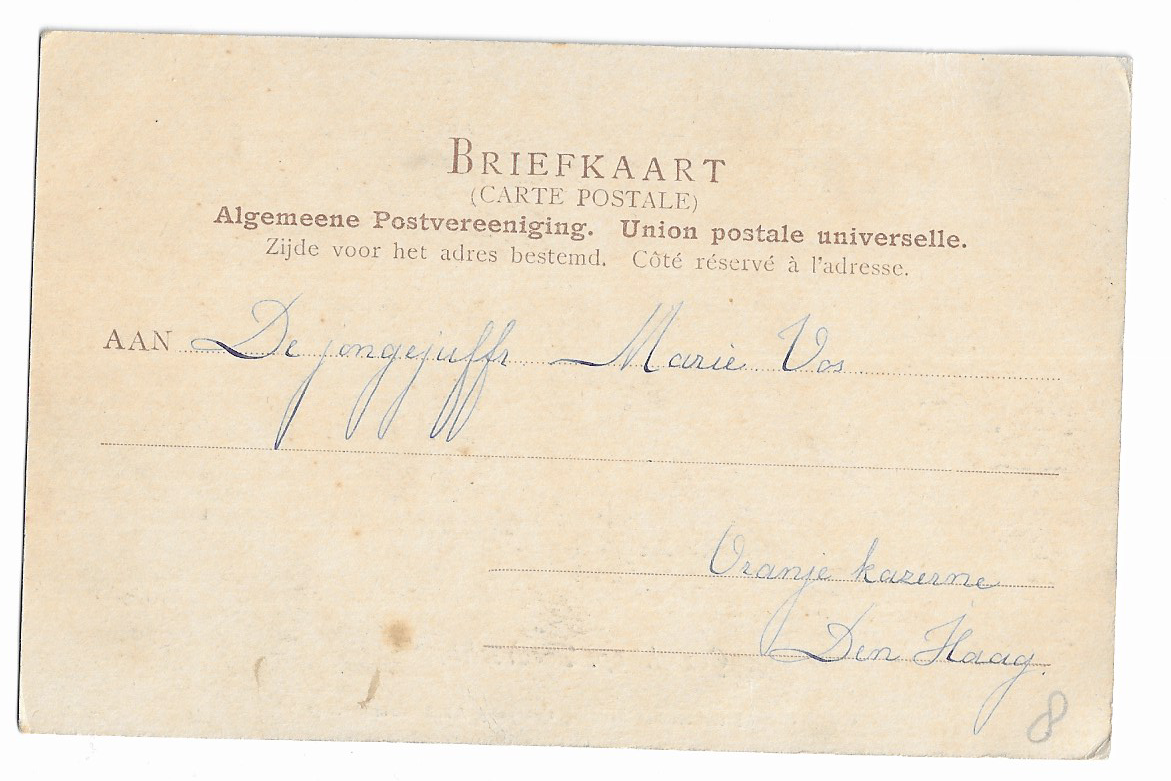 BRIEFKAART
(CARTE POSTALE)
Algemeene Postvereeniging. Union postale universelle.
Zijde voor het adres bestemd. Côté réservé à l'adresse.
AAN De jongejuffr Marie Vos
Oranje kazerne
Den Haag.
8